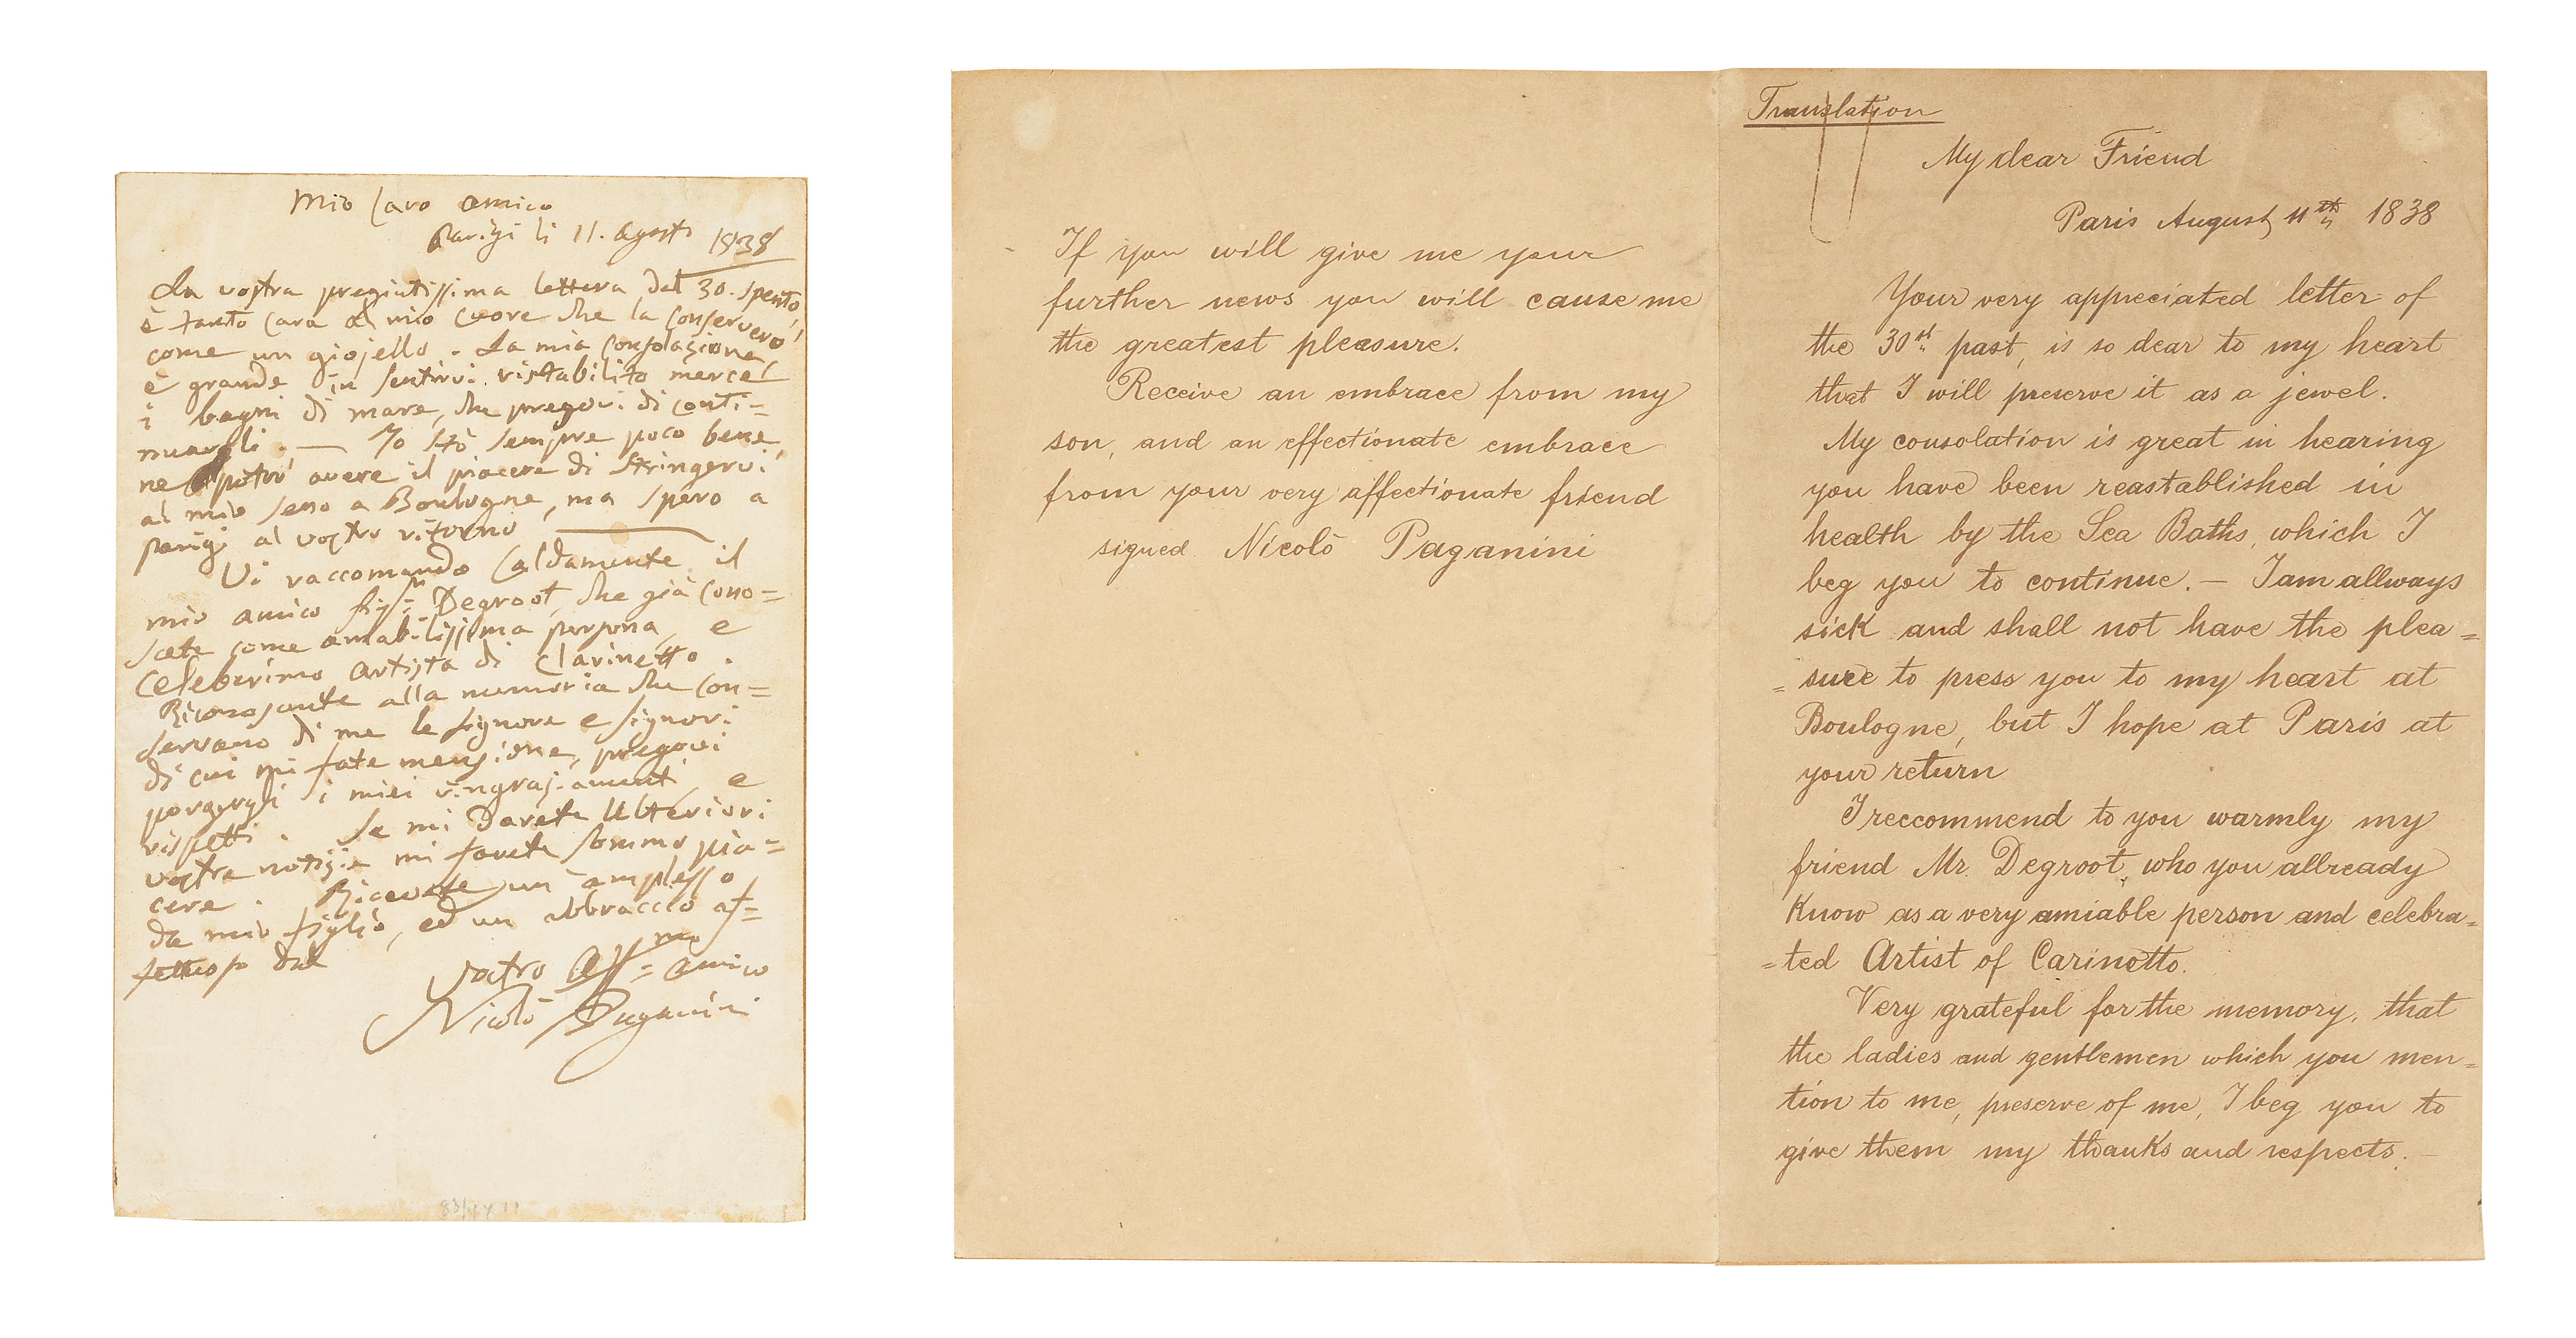 Mio Caro amico
Parigi li 11. Agosto 1838
La vostra pregiatissima lettera del 30. spento,
è tanto cara al mio cuore che la conserverò
come un giojello. La mia consolazione
è grande in sentirvi ristabilito mercé
i bagni di mare, che pregovi di conti=
nuargli. — Io stò sempre poco bene,
ne potrò avere il piacere di stringervi
al mio seno a Boulogne, ma spero a
parigi al vostro ritorno —
Vi raccomando caldamente il
mio amico Sigr Degroot, che già cono=
scete come amabilissima persona, e
celeberimo artista di Clarinetto.
Riconoscente alla memoria che con=
servano di me le signore e signori
di cui mi fate menzione, pregovi
porgergli i miei ringraziamenti e
rispetti. Se mi darete Ulteriori
vostre notizie mi farete sommo pia=
cere. Ricevete un amplesso
da mio figlio, ed un abbraccio af=
fettuoso dal
Vostro Aff=mo amico
Nicolò Paganini
Translation
My dear Friend
Paris August 11th 1838
Your very appreciated letter of
the 30st past, is so dear to my heart
that I will preserve it as a jewel.
My consolation is great in hearing
you have been reastablished in
health by the Sea Baths, which I
beg you to continue. — I am allways
sick and shall not have the plea=
=sure to press you to my heart at
Boulogne, but I hope at Paris at
your return
I reccommend to you warmly my
friend Mr. Degroot, who you allready
Know as a very amiable person and celebra=
=ted Artist of Carinetto.
Very grateful for the memory, that
the ladies and gentlemen which you men=
tion to me, preserve of me, I beg you to
give them my thanks and respects. —
If you will give me your
further news you will cause me
the greatest pleasure.
Receive an embrace from my
son, and an effectionate embrace
from your very affectionate friend
signed Nicolò Paganini